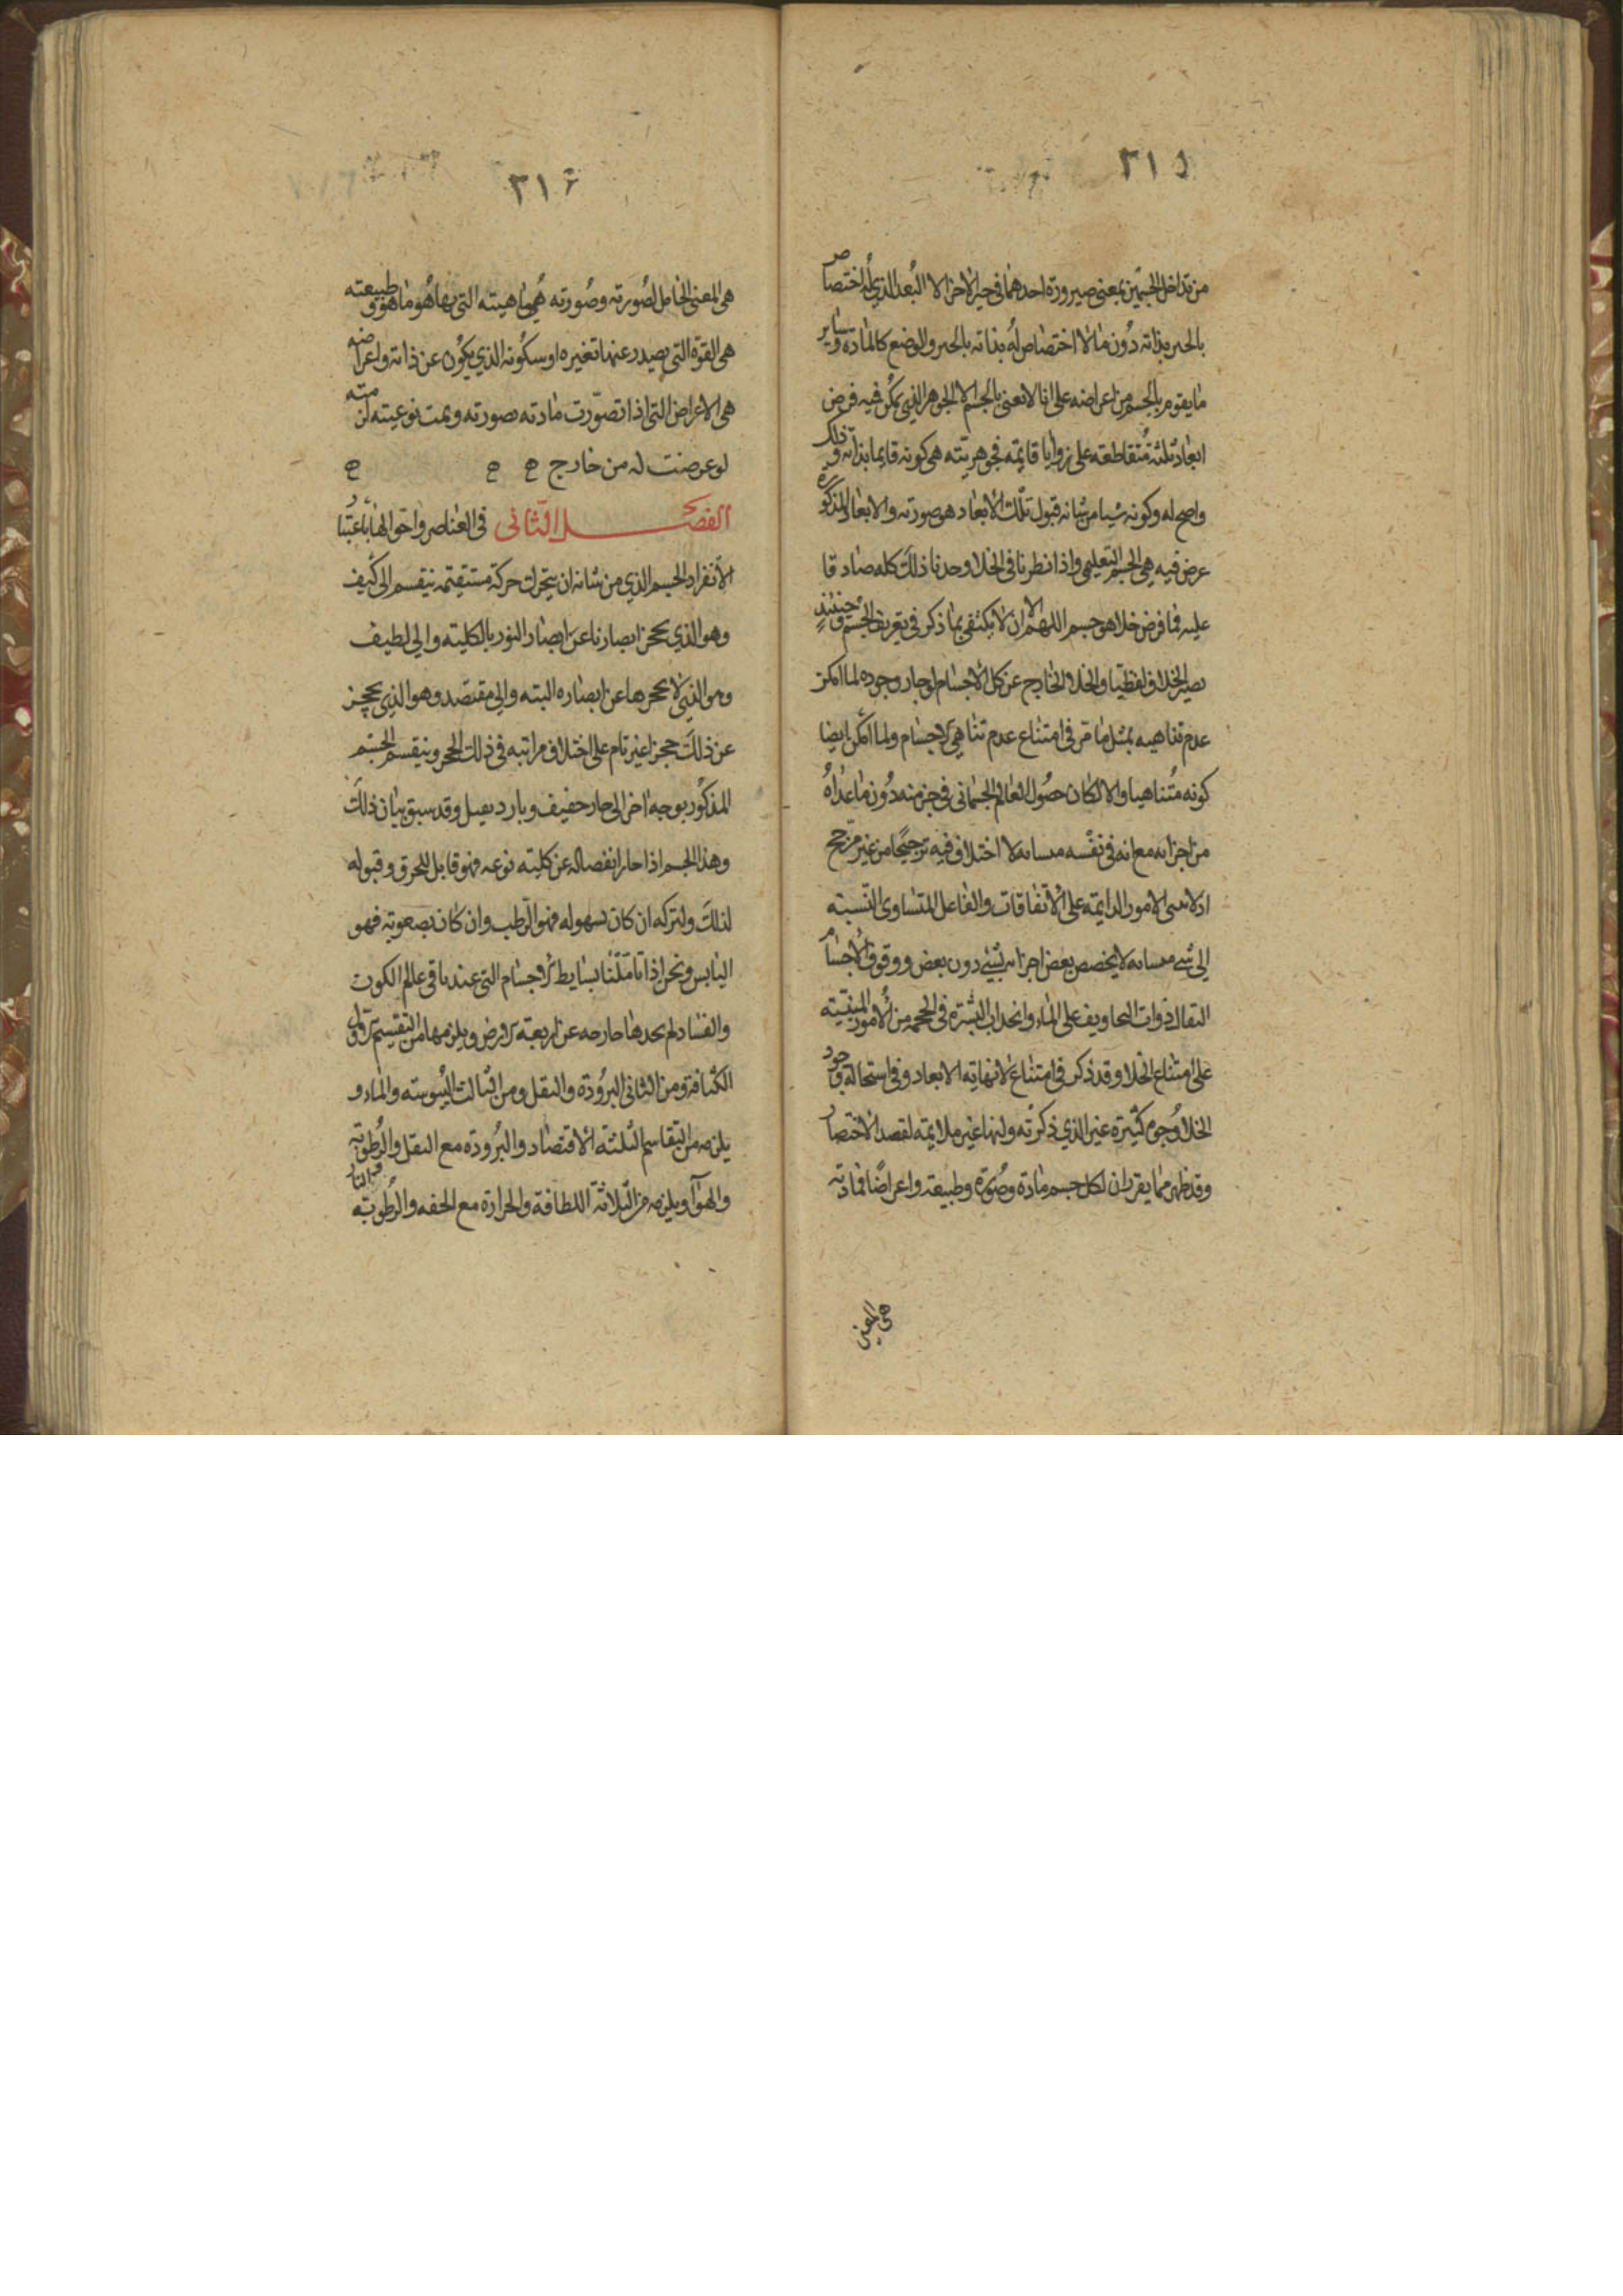 ٣١٥
من تداخل الجسمين بمعنى صيرورة احدهما في حيز الاخر الا البعد الذي له اختصاص
بالحيز بذاته دون ما لا اختصاص له بذاته بالحيز والوضع كالمادة وساير
ما يقوم بالجسم من اعراضه على انا لا نعنى بالجسم الا الجوهر الذي يمكن فيه فرض
ابعاد ثلثة متقاطعة على زوايا قايمة فجوهريته هى كونه قايما بذاته وذلك
واضح له وكونه شيا من شانه قبول تلك الابعاد هو صورته والابعاد المذكورة
عرض فيه هي الجسم التعليمي واذا نظرنا في الخلا وجدنا ذلك كله صادقا
عليه فما فرض خلا هو جسم اللهم الا ان لا يكتفى بما ذكر في تعريف الجسم وحينئذ
يصير الخلاف لفظيا والخلا الخارج عن كل الاجسام لو جاز وجوده لما امكن
عدم تناهيه بمثل ما مر في امتناع عدم تناهي الاجسام ولما امكن ايضا
كونه متناهيا والا لكان حصول العالم الجسماني في جزء منه دون ما عداه
من اجزايه مع انه في نفسه متشابه لا اختلاف فيه ترجيحا من غير مرجح
اذ لا تبنى الامور الدايمة على الاتفاقات والفاعل المتساوى النسبة
الى شى متشابه لا يخصص بعض اجزايه بشيء دون بعض ووقوف الاجسام
الثقال ذوات التجاويف على الماء وانجذاب البشرة في المحجمة من الامور المبنية
على امتناع الخلا وقد ذكر في امتناع لانهاية الابعاد وفي استحالة وجود
الخلا وجوه كثيرة غير الذي ذكرته ولنها غير ملايمة لقصد الاختصار
وقد ظهر مما يقرر ان لكل جسم مادة وصورة وطبيعة واعراضا فمادته
هى المعنى
٣١٦
هى المعنى الحامل لصورته وصورته هى ماهيته التى بها هو ما هو وطبيعته
هى القوة التى يصدر عنها تغيره او سكونه الذي يكون عن ذاته واعراضه
هى الاعراض التى اذا تصورت مادته بصورته وتمت نوعيته لزمته
لو عرضت له من خارج ه ه ه
الفصل الثانى في العناصر واحوالها باعتبار
الانفراد الجسم الذي من شانه ان يتحرك حركة مستقيمة ينقسم الى كثيف
وهو الذي يحجز ابصارنا عن ابصار النور بالكلية والى لطيف
وهو الذي لا يحجزها عن ابصاره البته والى مقتصد وهو الذي يحجز
عن ذلك حجزا غير تام على اختلاف مراتبه في ذلك الحجز وينقسم الجسم
المذكور بوجه اخر الى حار خفيف وبارد ثقيل وقد سبق بيان ذلك
وهذا الجسم اذا جاز انفصاله عن كلية نوعه فهو قابل للخرق وقبوله
لذلك ولتركه ان كان بسهوله فهو الرطب وان كان بصعوبة فهو
اليابس ونحن اذا تاملنا بسايط الاجسام التى عندنا في عالم الكون
والفساد لم نجدها خارجه عن اربعة الارض ويلزمها من التقسيم الاول
الكثافة ومن الثاني البرودة والثقل ومن الثالث اليبوسة والماء و
يلزمه من التقاسيم الثلثة الاقتصاد والبرودة مع الثقل والرطوبة
والهوآ ويلزمه من الثلاثة اللطافة والحرارة مع الخفه والرطوبة والنار